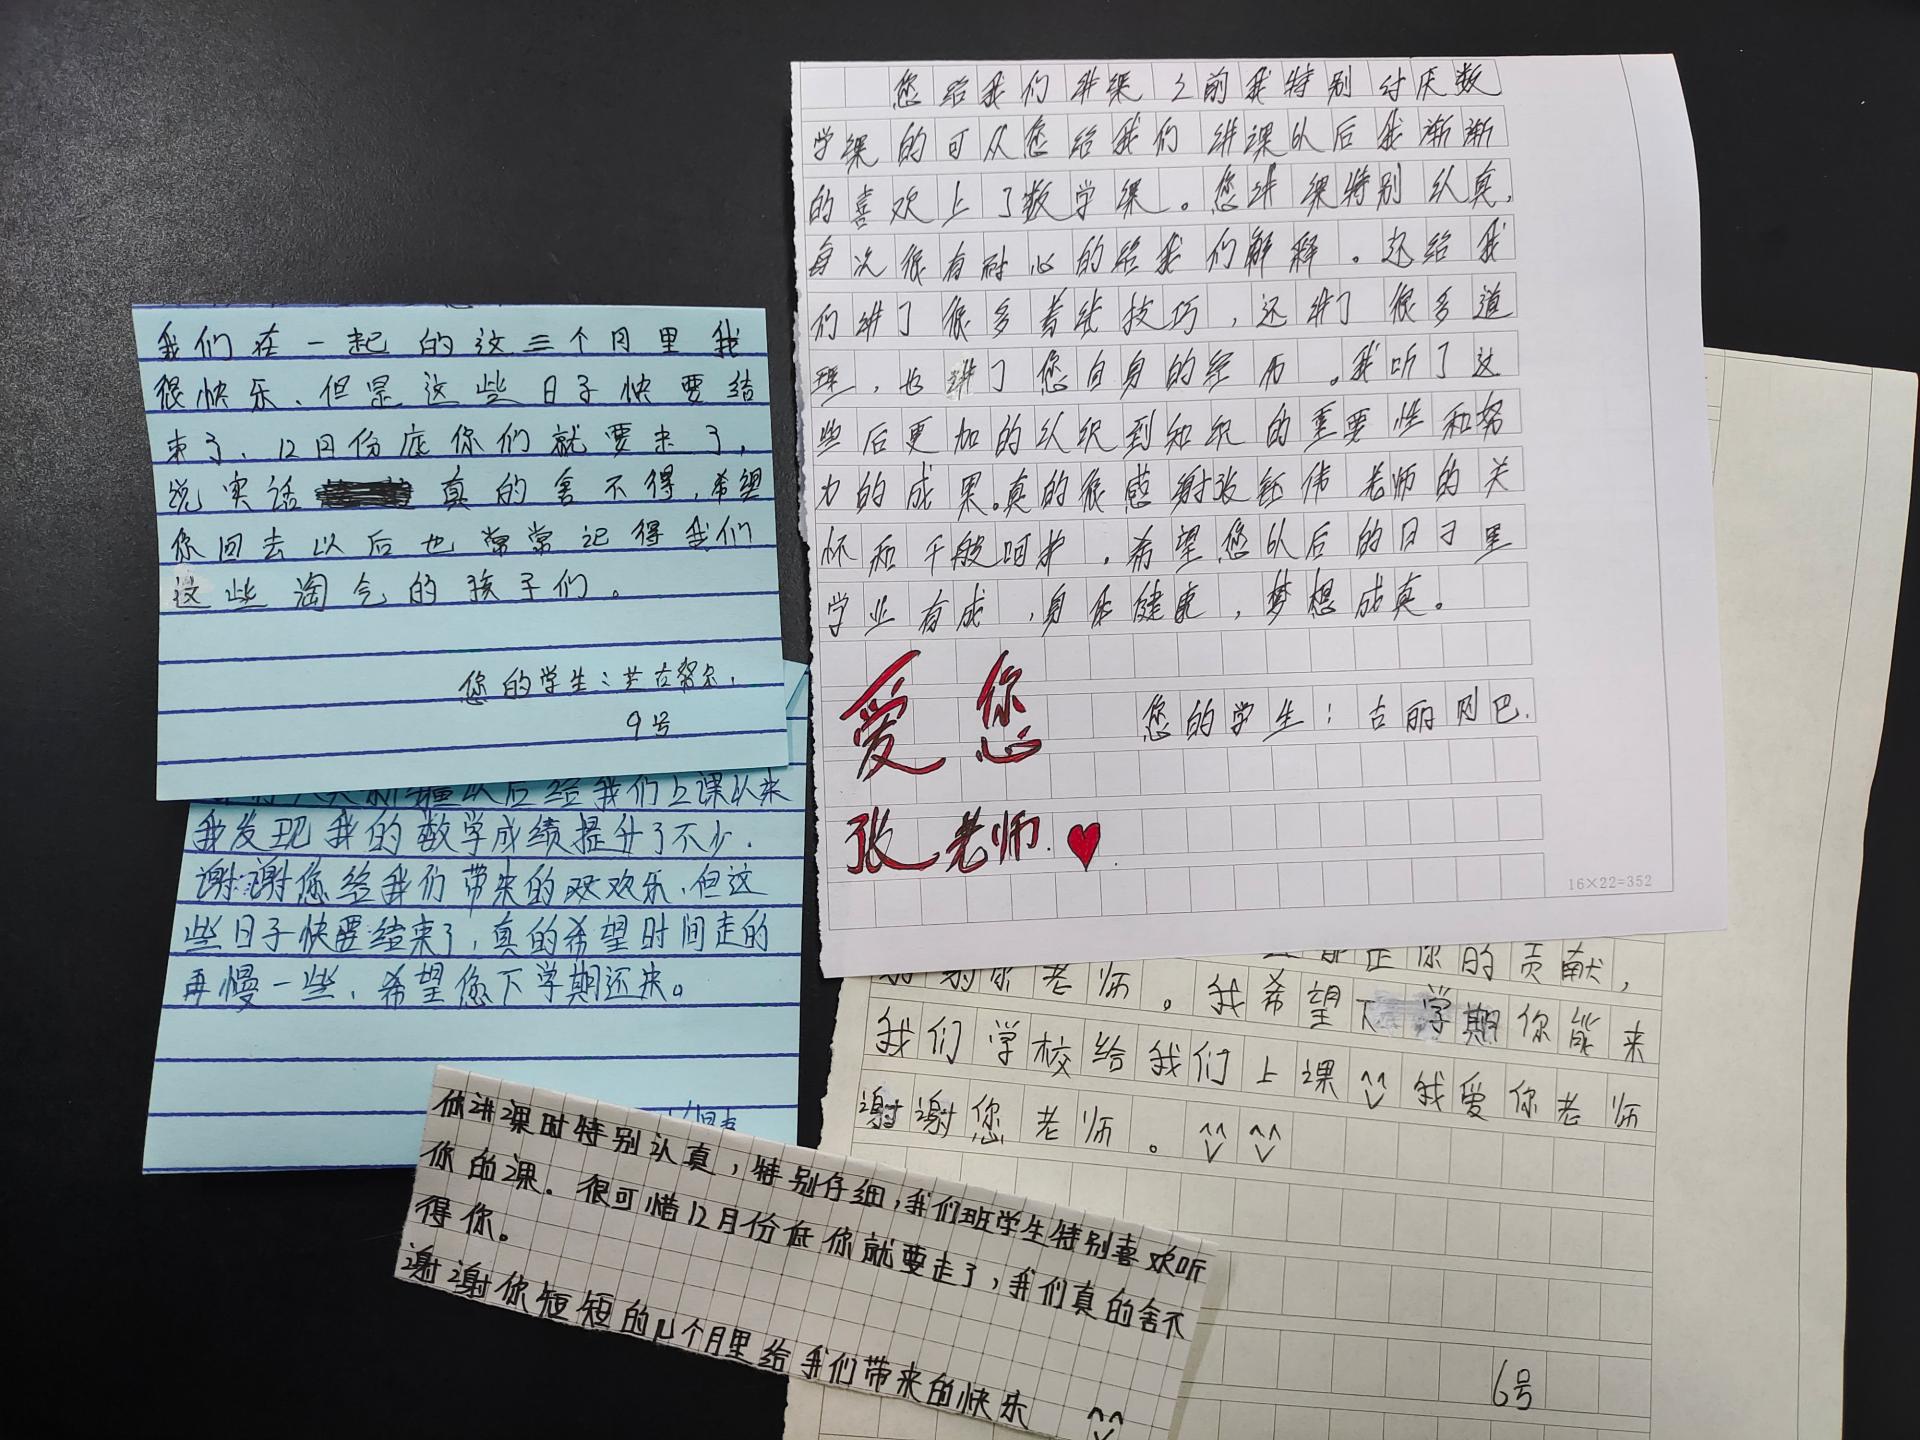 我们在一起的这三个月里我
很快乐、但是这些日子快要结
束了、12月份底你们就要走了,
说实话 真的舍不得,希望
你回去以后也常常记得我们
这些淘气的孩子们。
您的学生:兰古努尔.
9号
以后给我们上课以来
我发现我的数学成绩提升了不少.
谢谢您给我们带来的欢欢乐.但这
些日子快要结束了,真的希望时间走的
再慢一些、希望您下学期还来。
您给我们讲课之前我特别讨厌数
学课的可从您给我们讲课以后我渐渐
的喜欢上了数学课。您讲课特别认真,
每次很有耐心的给我们解释。还给我
们讲了很多考试技巧,还讲了很多道
理,也讲了您自身的经历。我听了这
些后更加的认识到知识的重要性和努
力的成果。真的很感谢张钰伟老师的关
怀和千般呵护。希望您以后的日子里
学业有成,身体健康,梦想成真。
爱您
您的学生:古丽网巴.
张老师.♥.
16×22=352
你的贡献,
谢谢你老师。我希望下学期你能来
我们学校给我们上课^^我爱你老师
谢谢您老师。^^ ^^
6号
你讲课时特别认真,特别仔细,我们班学生特别喜欢听
你的课.很可惜12月份底你就要走了,我们真的舍不
得你。
谢谢你短短的几个月里给我们带来的快乐 ^^